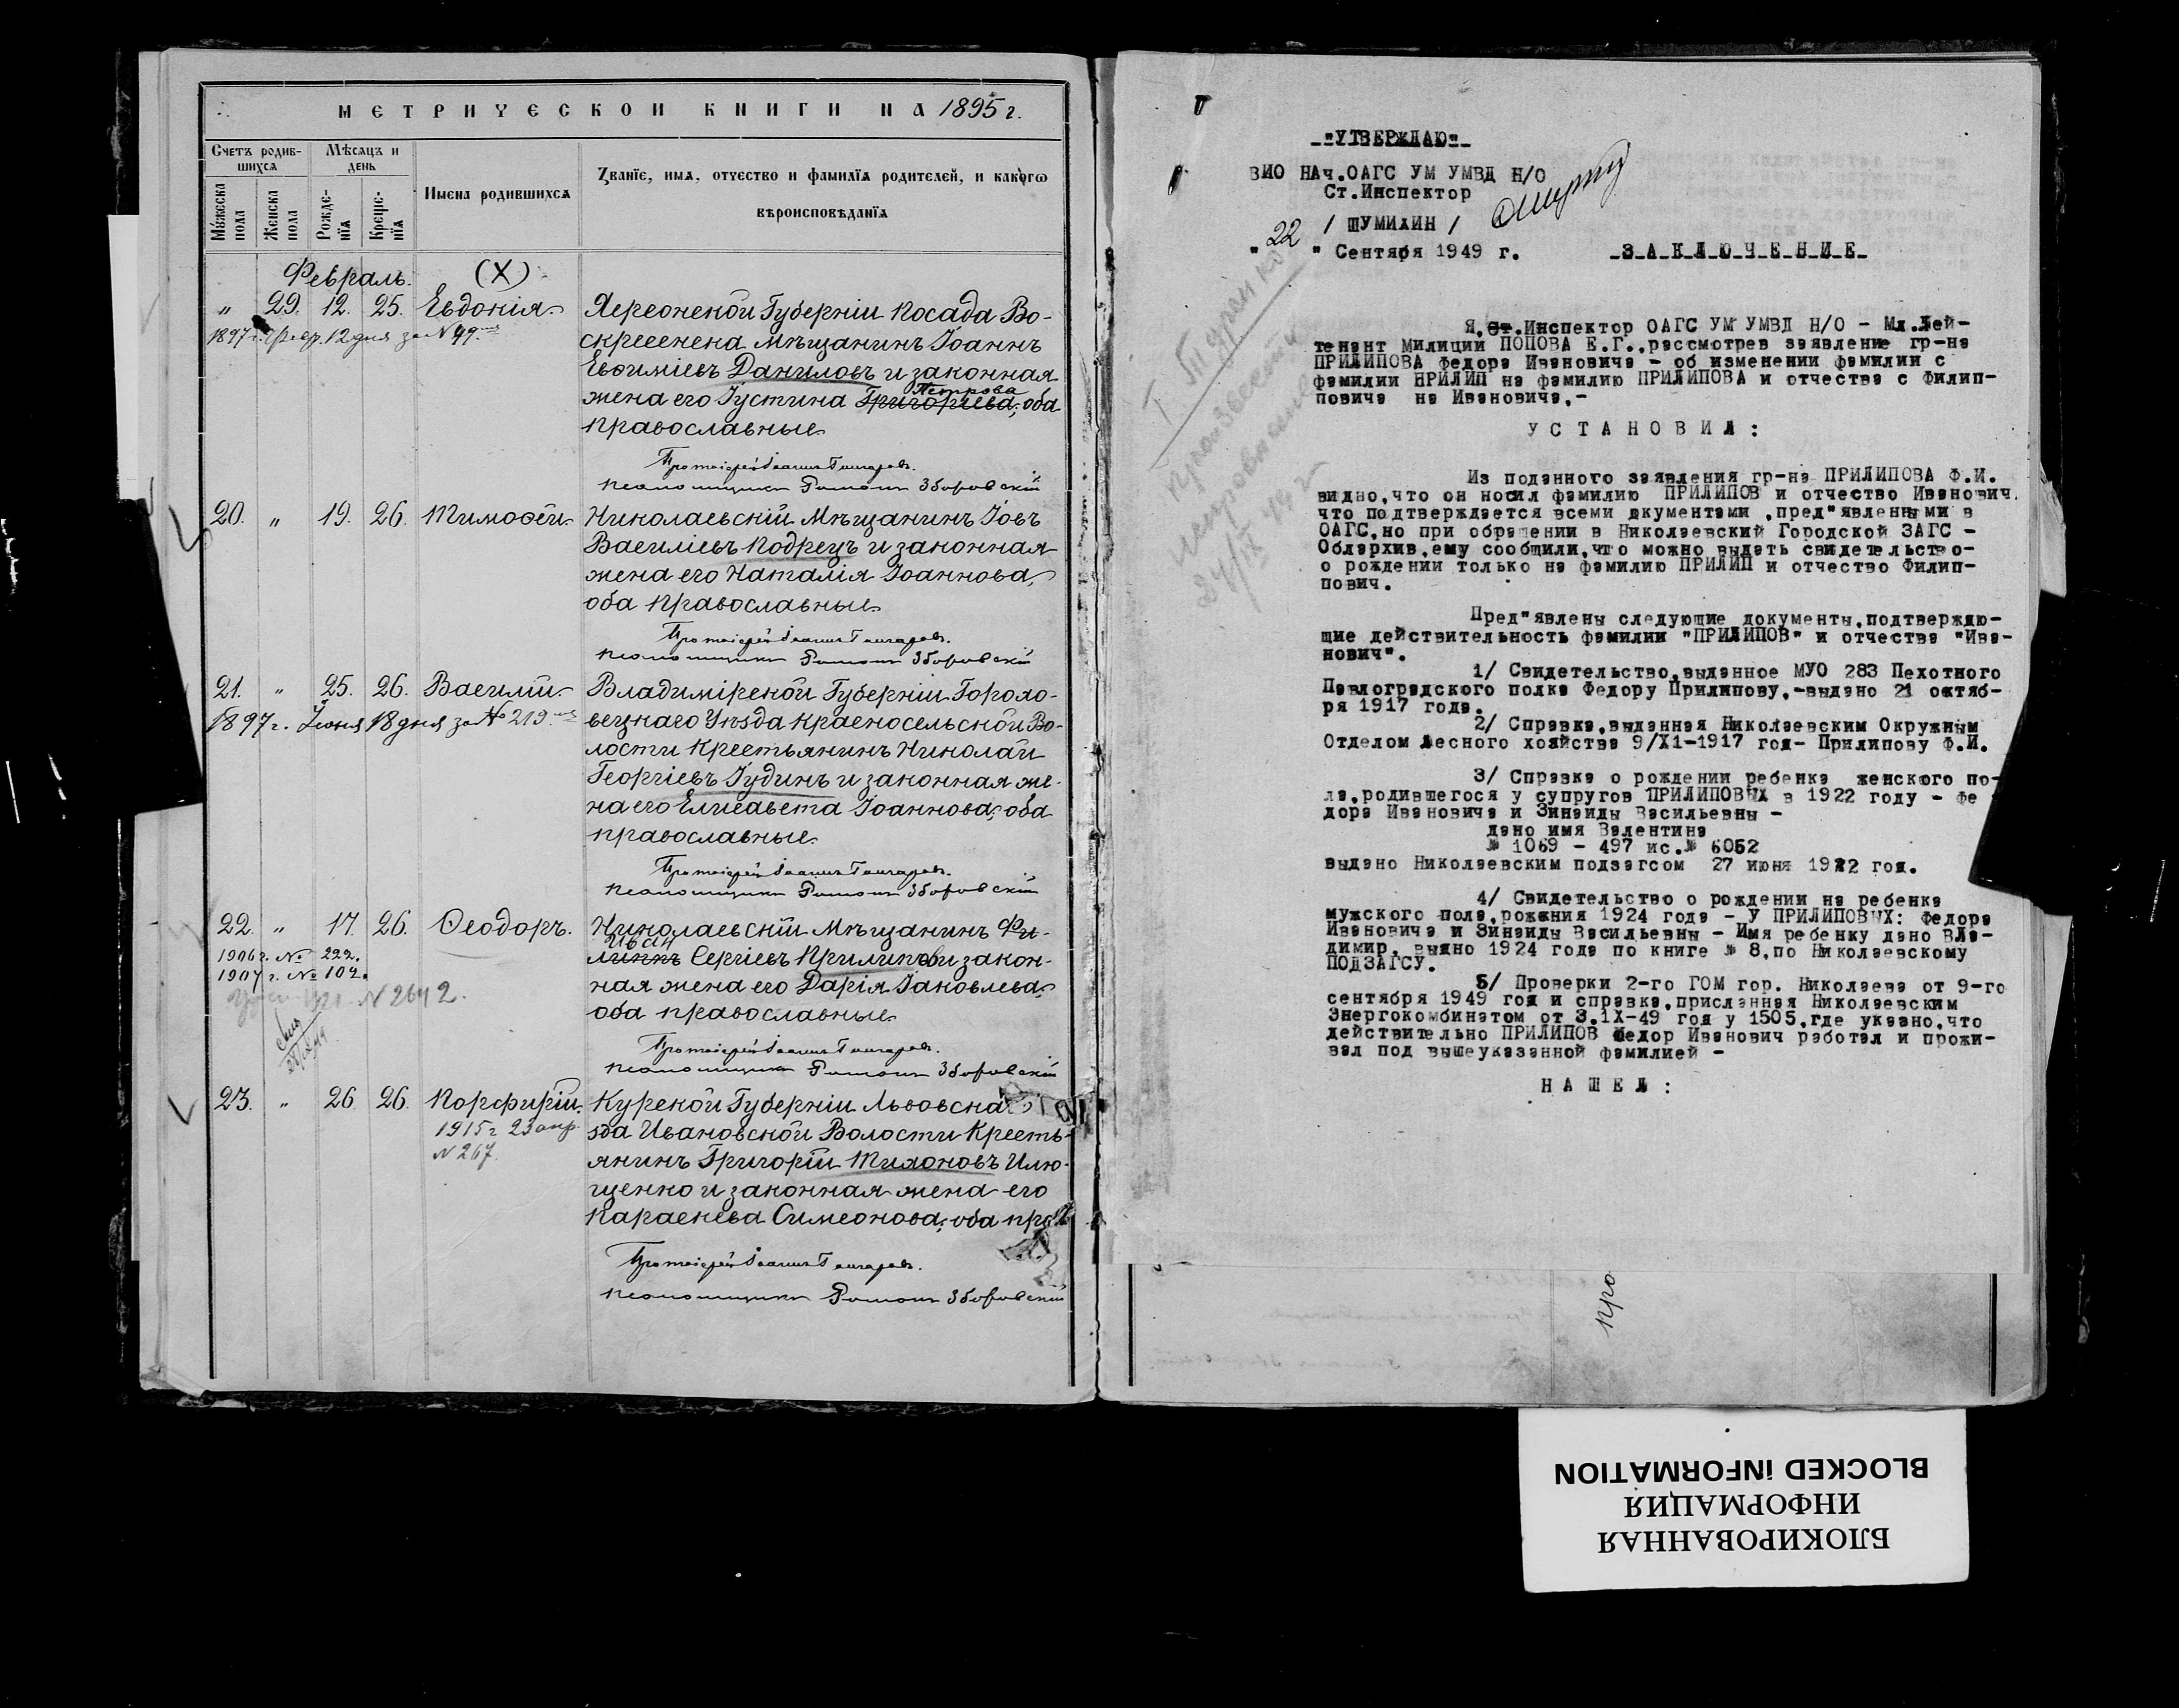 МЕТРИЧЕСКОЙ КНИГИ НА 1895 г.
Счетъ родив-
шихсѧ
Мѣсѧцъ и
день
Имена родившихсѧ
Званїе, имѧ, отчество и фамилїѧ родителей, и какогѡ
вѣроисповѣданїѧ
Мꙋжеска
пола
Женска
пола
Рожде-
нїѧ
Креще-
нїѧ
Февраль.
(X)
" 29. 12. 25. Евдокія
1897 г. Февр. 12 дня за N 49.
Херсонской Губерніи Посада Во-
скресенска Мѣщанинъ Іоаннъ
Евѳиміевъ Даниловъ и законная
жена его Іустина Григорьева, оба
Петрова
православные
Протоіерей Іоаннъ Гончаровъ.
Псаломщикъ Романъ Зборовскій
20. " 19. 26. Тимоѳей
Николаевскій Мѣщанинъ Іовъ
Василіевъ Кодрецъ и законная
жена его Наталія Іоаннова,
оба православные
Протоіерей Іоаннъ Гончаровъ.
Псаломщикъ Романъ Зборовскій
21. " 25. 26. Василій
1897 г. Іюня 18 дня за № 219.
Владимірской Губерніи Горохо-
вецкаго Уѣзда Красносельской Во-
лости Крестьянинъ Николай
Георгіевъ Гудинъ и законная же-
на его Елисавета Іоаннова, оба
православные
Протоіерей Іоаннъ Гончаровъ.
Псаломщикъ Романъ Зборовскій
22. " 17. 26. Ѳеодоръ.
1906 г. № 222.
1907 г. № 102.
N 2642.
Николаевскій Мѣщанинъ Фи-
Иван
липпъ Сергіевъ Прилипов и закон-
ная жена его Дарія Іаковлева,
оба православные
Протоіерей Іоаннъ Гончаровъ.
Псаломщикъ Романъ Зборовскій
23. " 26. 26. Порфирій.
1915 г. 23 апр.
N 267.
Курской Губерніи Льговска
зда Ивановской Волости Кресть-
янинъ Григорій Тихоновъ Илю-
щенко и законная жена его
Параскева Симеонова, оба пра
Протоіерей Іоаннъ Гончаровъ.
Псаломщикъ Романъ Зборовскій
"УТВЕРЖДАЮ"
ВИО НАч.ОАГС УМ УМВД Н/О
Ст.Инспектор
/ ШУМИЛИН /
" 22 " Сентября 1949 г.
З А К Л Ю Ч Е Н И Е
Я,Ст.Инспектор ОАГС УМ УМВД Н/О - Мл.Лей-
тенант Милиции ПОПОВА Е.Г.,рассмотрев заявление гр-на
ПРИЛИПОВА Федора Ивановича - об изменении фамилии с
фамилии ПРИЛИП на фамилию ПРИЛИПОВА и отчества с Филип-
повича на Ивановича,-
У С Т А Н О В И Л :
Из поданного заявления гр-на ПРИЛИПОВА Ф.И.
видно,что он носил фамилию ПРИЛИПОВ и отчество Иванович,
что подтверждается всеми дкументами ,пред"явленными в
ОАГС,но при обращении в Николаевский Городской ЗАГС -
Облархив,ему сообщили,что можно выдать свидетельство-
о рождении только на фамилию ПРИЛИП и отчество Филип-
пович.
Пред"явлены следующие документы,подтверждю-
щие действительность фамилии "ПРИЛИПОВ" и отчества "Ива-
нович".
1/ Свидетельство,выданное МУО 283 Пехотного
Павлоградского полка Федору Прилипову,-выдано 21 октяб-
ря 1917 года.
2/ Справка,выданная Николаевским Окружным
Отделом Лесного хояйства 9/X1-1917 год- Прилипову Ф.И.
3/ Справка о рождении ребенка женского по-
ла,родившегося у супругов ПРИЛИПОВЫХ в 1922 году - Фе
дора Ивановича и Зинаиды Васильевны -
дано имя Валентина
№ 1069 - 497 ис.№ 6052
выдано Николаевским подзагсом 27 июня 1922 год.
4/ Свидетельство о рождении на ребенка
мужского пола,рожения 1924 года - У ПРИЛИПОВЫХ: Федора
Ивановича и Зинаиды Васильевны - Имя ребенку дано ВЛа-
димир, выдно 1924 года по книге № 8,по Николаевскому
ПОДЗАГСУ.
5/ Проверки 2-го ГОМ гор. Николаева от 9-го
сентября 1949 год и справка,присланная Николаевским
Энергокомбинатом от 3.1X-49 год у 1505,где указно,что
действительно ПРИЛИПОВ Федор Иванович работал и прожи-
вал под вышеуказанной фамилией -
Н А Ш Е Л :
про
БЛОКИРОВАННАЯ
ИНФОРМАЦИЯ
BLOCKED iNFORMATION